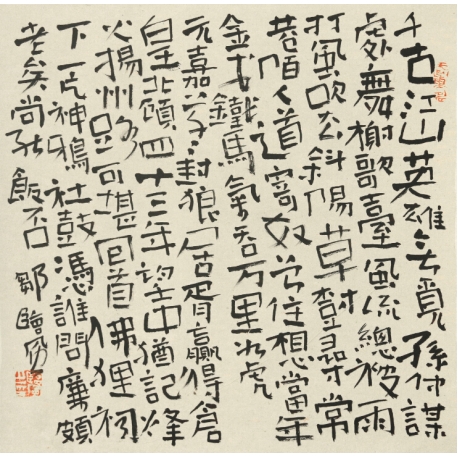 千古江山英雄无覓孫仲謀
處舞榭歌臺風流總被雨
打風吹去斜陽草樹尋常
巷陌人道寄奴曾住想當年
金戈鐵馬氣吞万里如虎
元嘉草〻封狼居胥贏得倉
皇北顧四十三年望中猶記烽
火揚州路可堪回首佛狸祠
下一片神鴉社鼓憑誰問廉頗
老矣尚能飯否 鄒臨